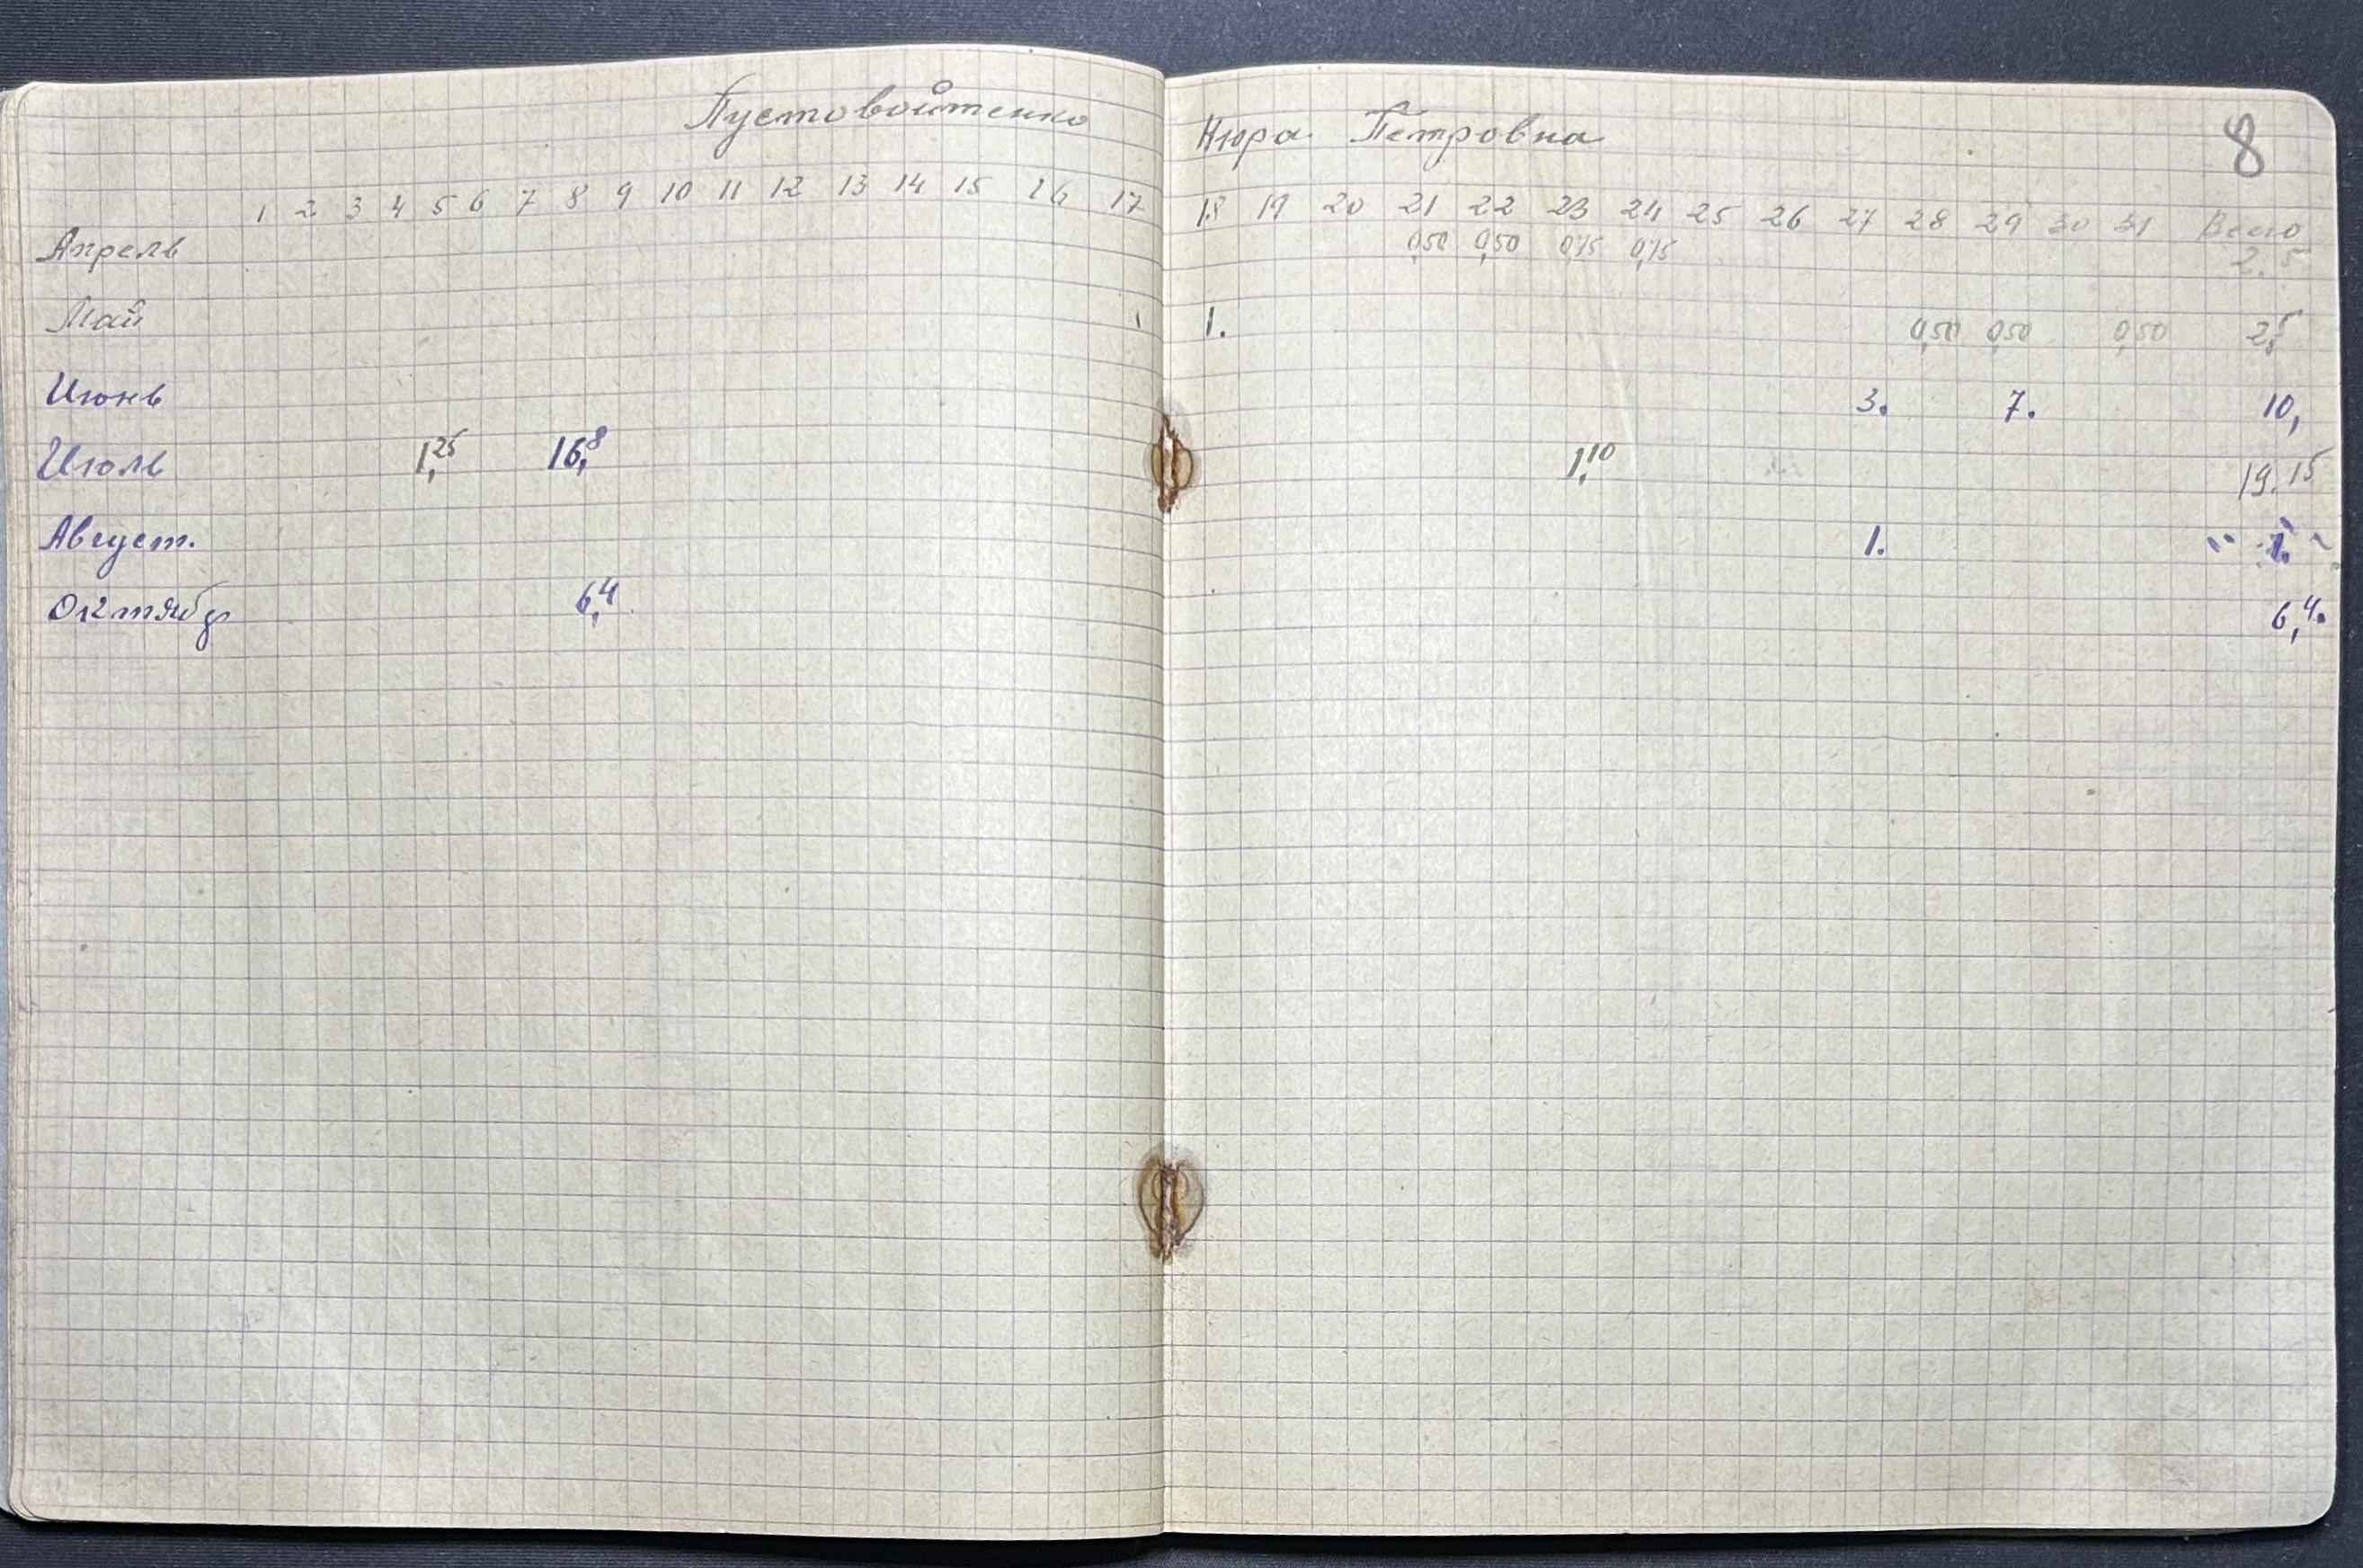 Пустовойтенко Нюра Петровна 8
1 2 3 4 5 6 7 8 9 10 11 12 13 14 15 16 17 18 19 20 21 22 23 24 25 26 27 28 29 30 31 Всего
Апрель 0,50 0,50 0,75 0,75 2.5
Май 1. 0,50 0,50 0,50 2,5
Июнь 3. 7. 10,
Июль 1,25 16,8 1,10 19.15
Август. 1. 1.
Октябр 6,4 6,4.